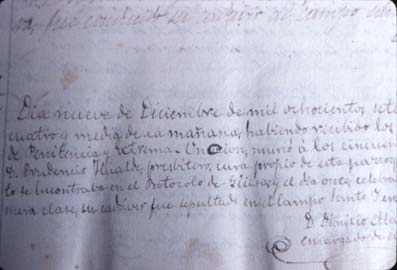 fue conducido su cadaver al campo san
Dia nueve de Diciembre de mil ochocientos sete
cuatro y media de la mañana, habiendo recibido los
de Penitencia y Extrema-Uncion, murió á los cincuen
D. Prudencio Ilzalde, presbitero, cura propio de esta parroq
to se encontraba en el Protocolo de el dia once, celebra
mera clase, su cadáver fue sepultado en el Campo Santo
D. Dionisio
encargado de